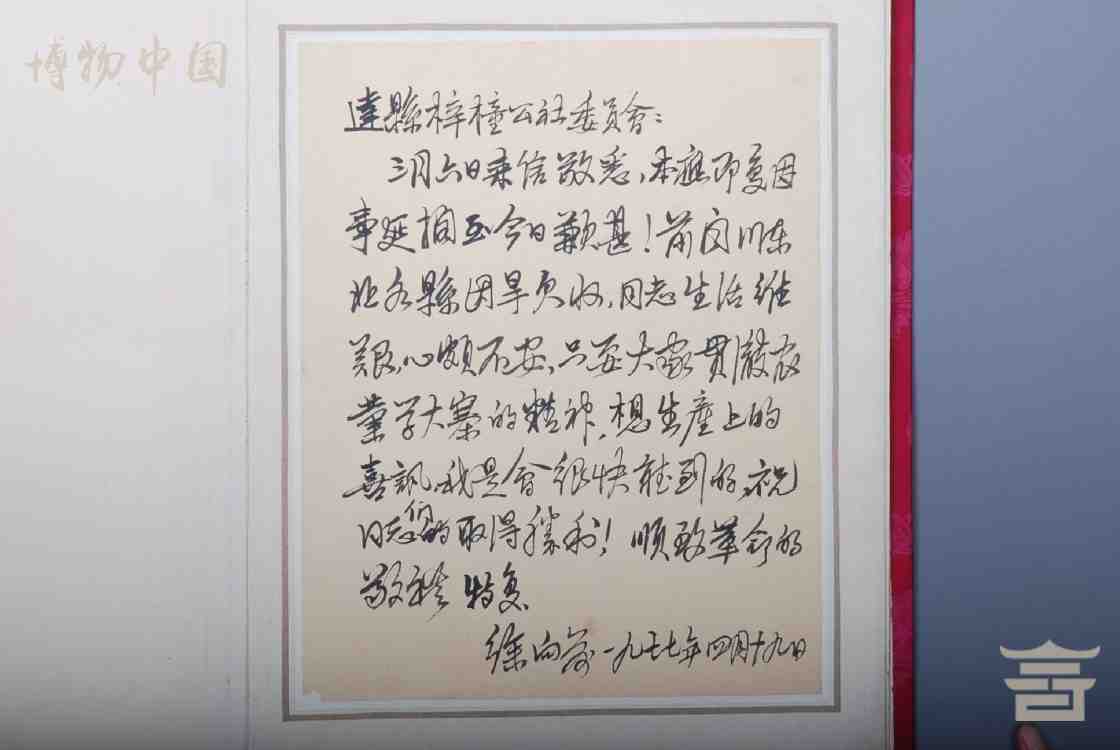 博物中国
達縣梓橦公社委員會：
三月六日来信敬悉，本應即复因
事延搁至今日歉甚！前闵川东
北各縣因旱欠收，同志生活维
艱，心頗不安，只要大家贯徹农
業学大寨的精神，想生產上的
喜訊，我是會很快聽到的，祝
同志们的取得勝利！順致革命的
敬禮 特复
徐向前 一九七七年四月十九日